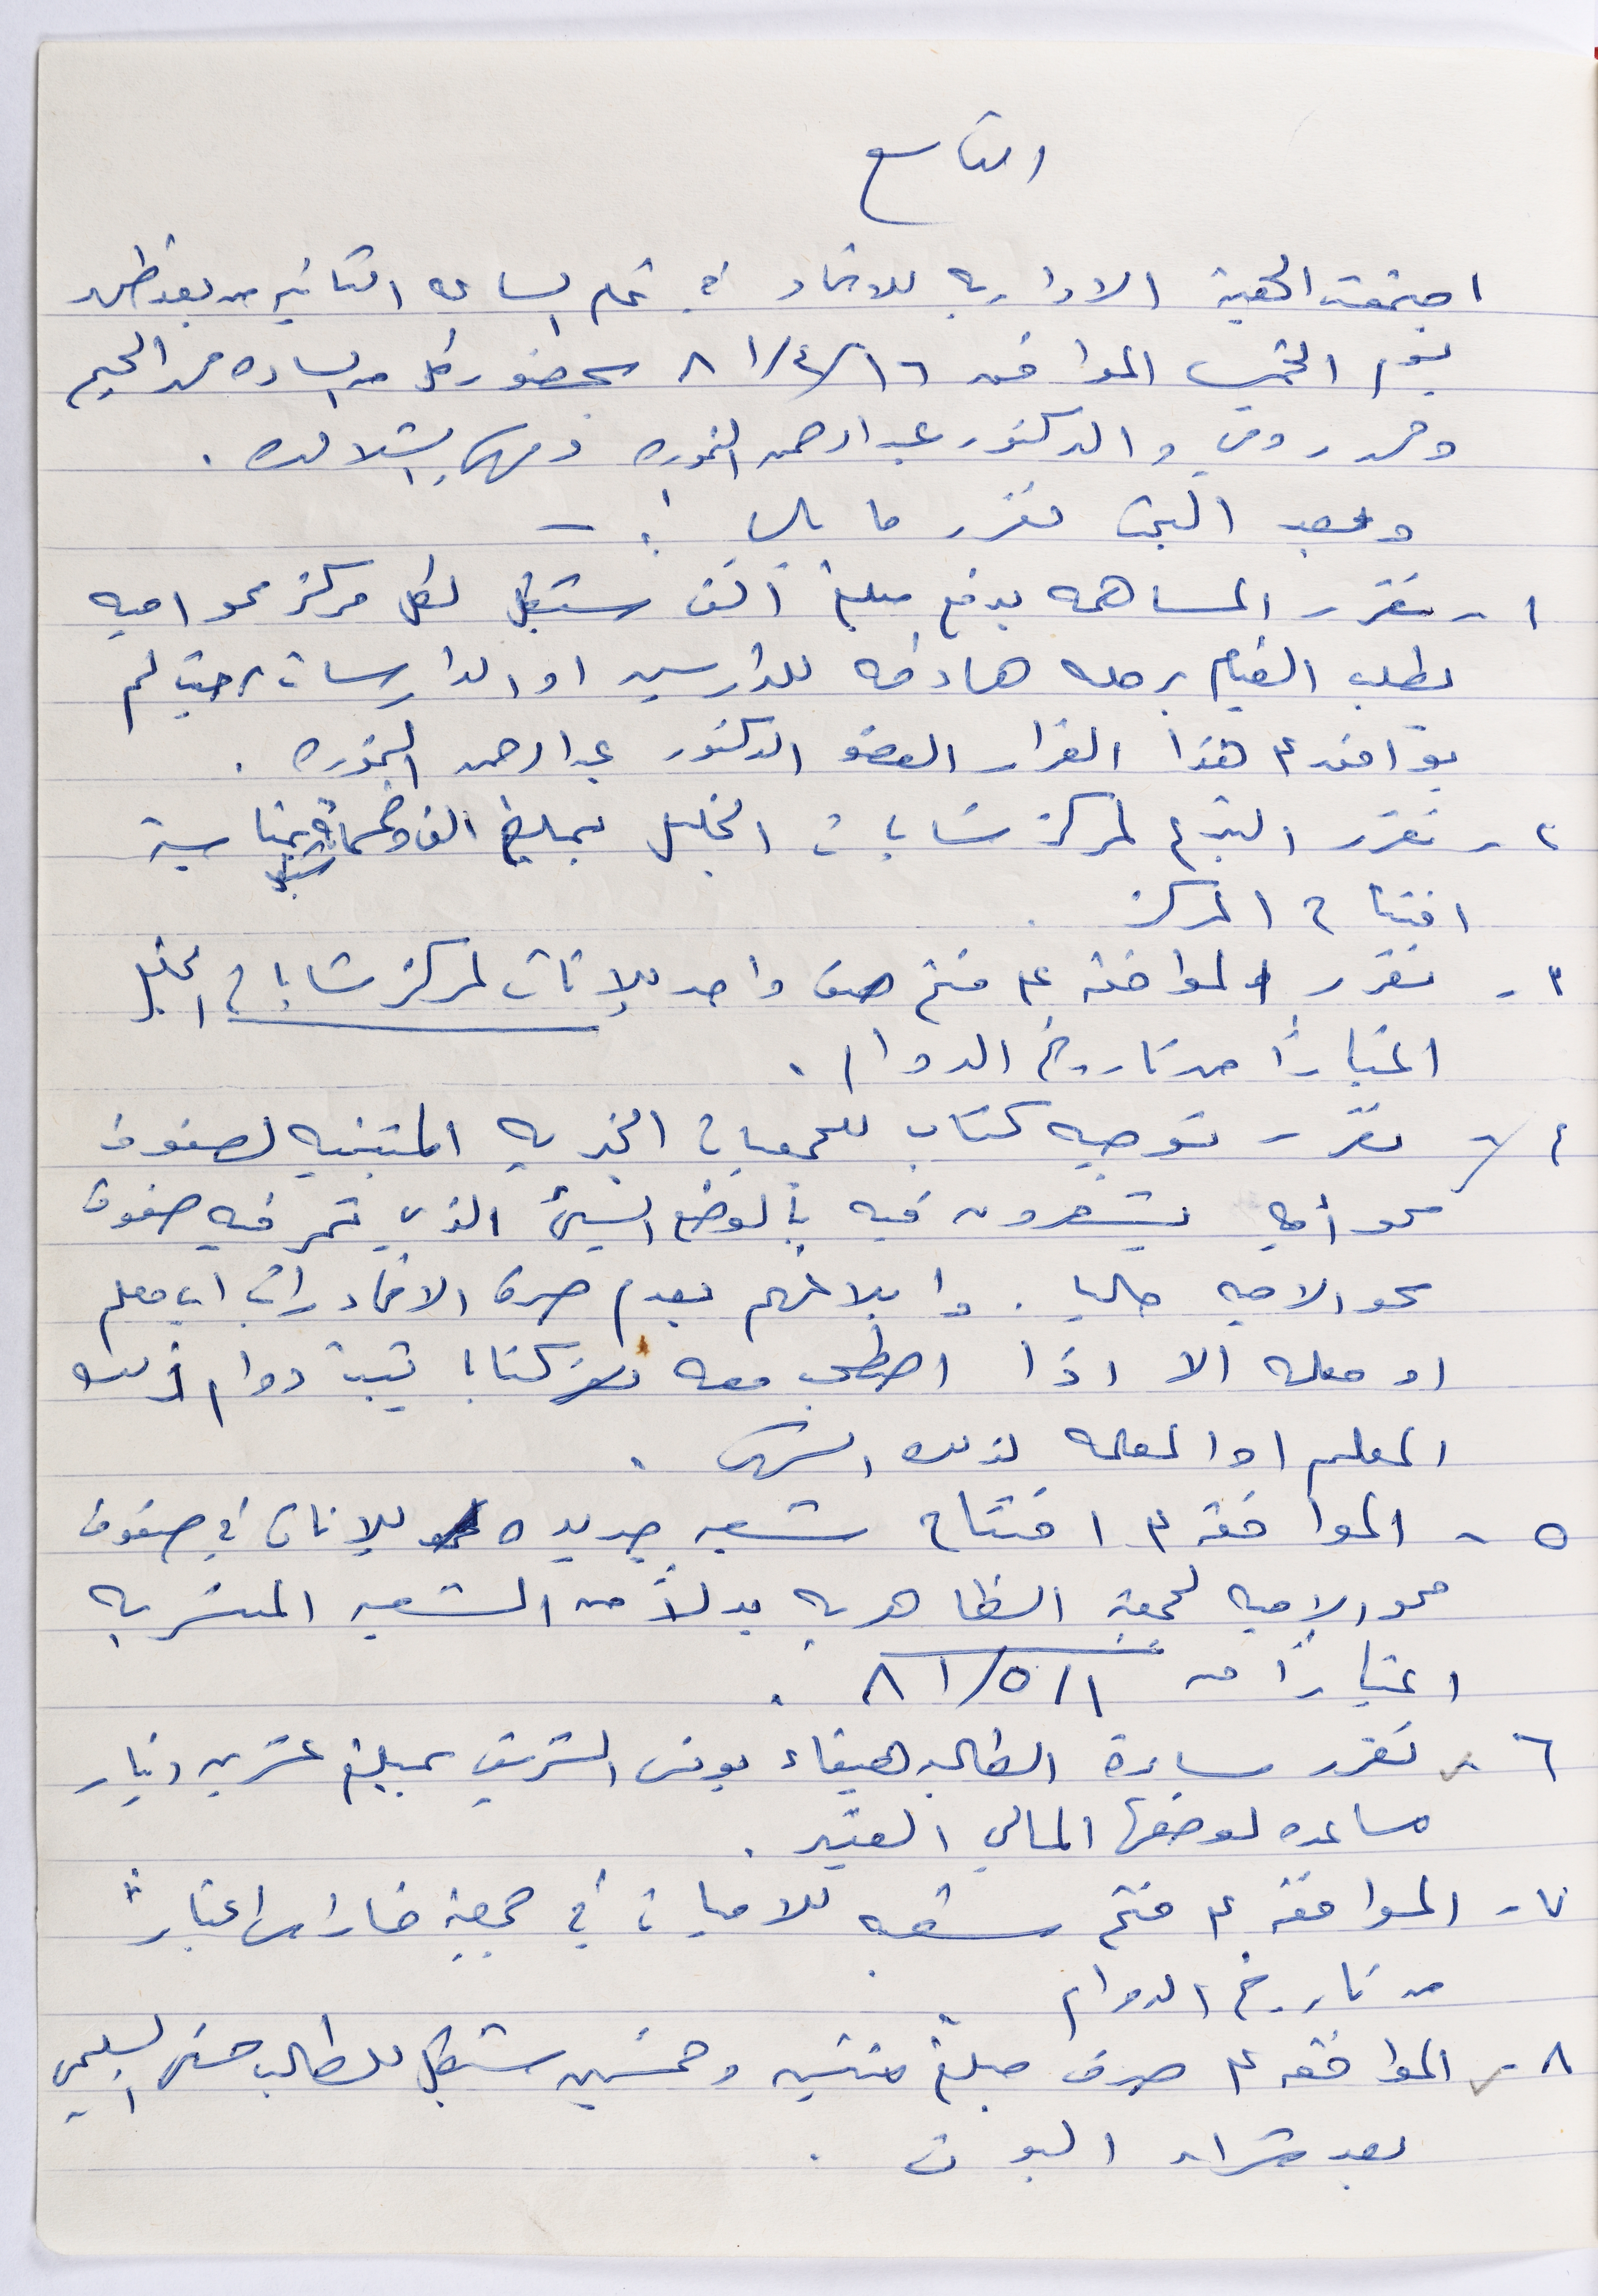 التاسع
اجتمعت الهيئة الاداريه للاتحاد في تمام الساعه الثانيه من بعد ظهر
يوم الخميس الموافق ١٦/٤/٨١ بحضور كل من الساده
والدكتور عبد الرحمن النموره
وبعد البحث تقرر ما يلي :-
١- تقرر المساهمه بدفع مبلغ الف شيقل لكل مركز محو اميه
يطلب القيام برحله هادفه للدارسين او الدارسات حيث لم
يوافق على هذا القرار العضو الدكتور عبد الرحمن النموره .
٢- تقرر التبرع لمركز شابات الخليل بمبلغ الف وخمسماية شيقل بمناسبة
افتتاح المركز .
٣- تقرر الموافقه على فتح صف واحد للإناث لمركز شابات الخليل
اعتباراً من تاريخ الدوام .
٤- تقرر توجيه كتاب للجمعيات الخيريه المتبنيه لصفوف
محو أميه يشعرون فيه بالوضع السيئ الذي تمر فيه صفوف
محو الاميه حاليا . وابلاغهم بعدم صرف الاتحاد راتب اي معلم
او معلمه الا اذا اصطحب معه كتابا يثبت دوام ذلك
المعلم او المعلمه لذلك الشهر .
٥- الموافقه على افتتاح شعبه جديده للإناث في صفوف
محو الاميه لجمعية الظاهريه بدلاً من الشعبه المتسربه
اعتباراً من ١/٥/٨١ .
٦- تقرر مساعدة الطالبه هيفاء يونس الشريف بمبلغ عشرين دينار
مساعده لوضعها المالي
٧- الموافقه على فتح شعبه للاميات في جمعية خاراس اعتباراً
من تاريخ الدوام
٨- الموافقه على صرف مبلغ مئتين وخمسين شيقل للطالب
بعد شراء